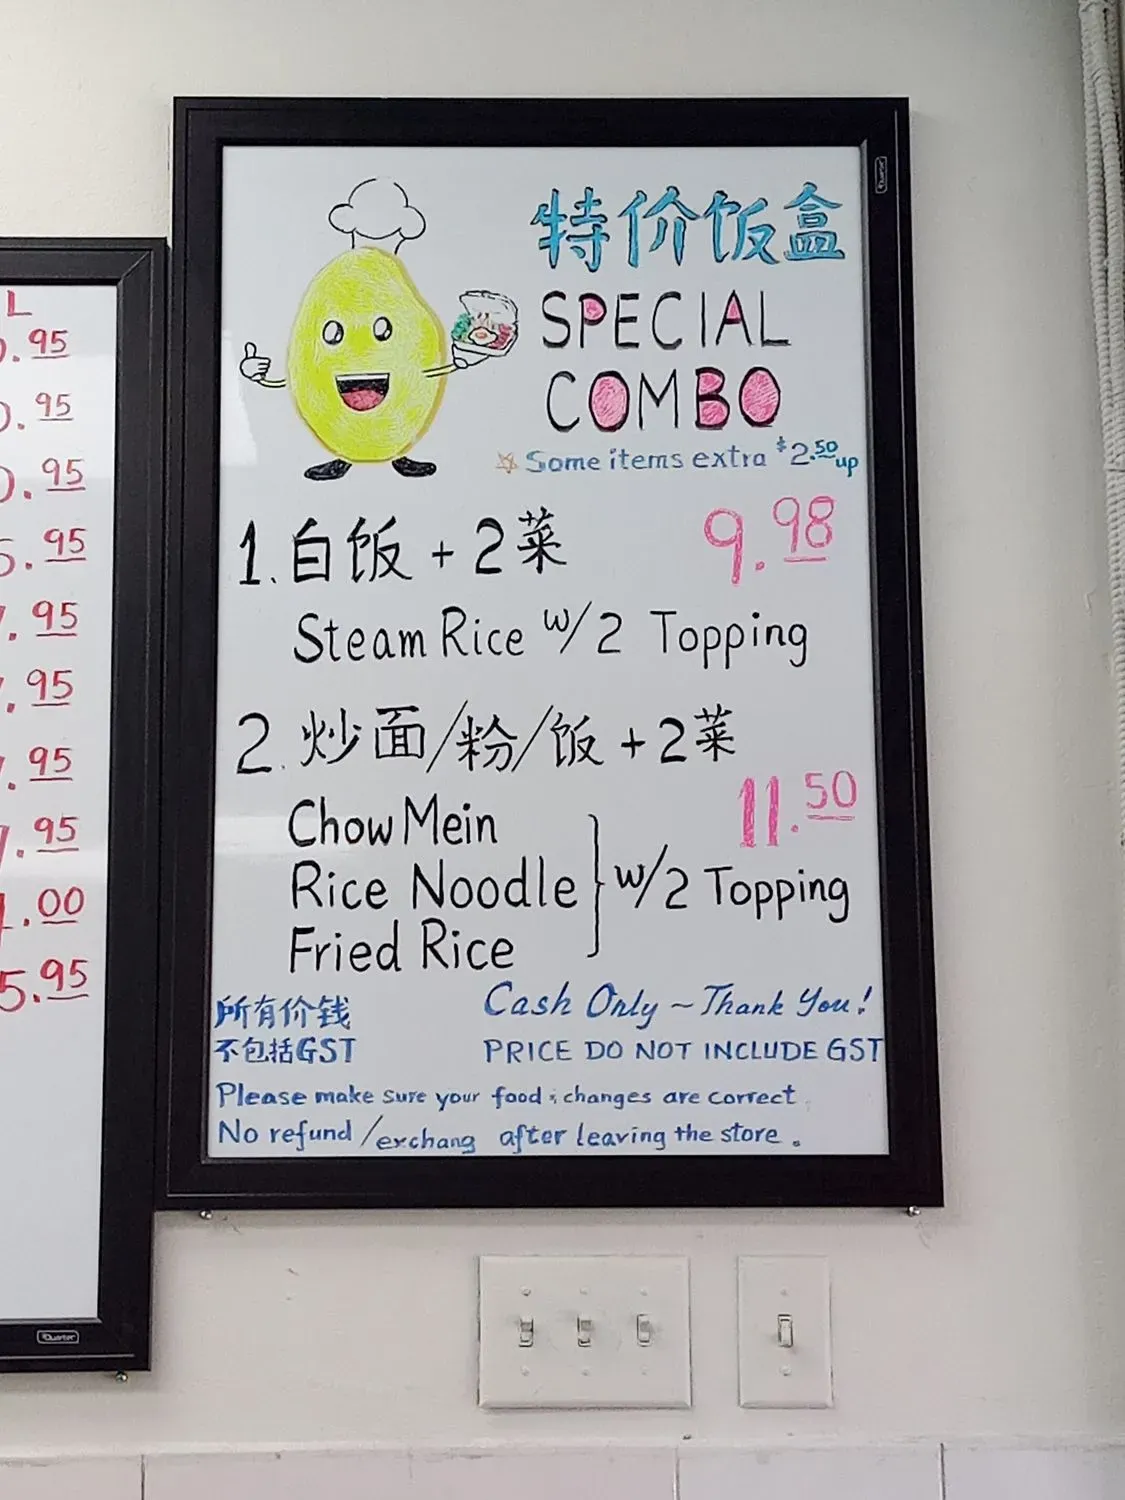 L
.95
.95
.95
.95
.95
.95
.95
.95
.00
5.95
Quartet
Quartet
特价饭盒
SPECIAL
COMBO
Some items extra $2.50 up
1. 白饭 + 2菜 9.98
Steam Rice w/ 2 Topping
2. 炒面/粉/饭 + 2菜
11.50
Chow Mein
Rice Noodle w/2 Topping
Fried Rice
所有价钱
不包括GST
Cash Only ~ Thank You!
PRICE DO NOT INCLUDE GST
Please make sure your food & changes are correct
No refund / exchang after leaving the store.